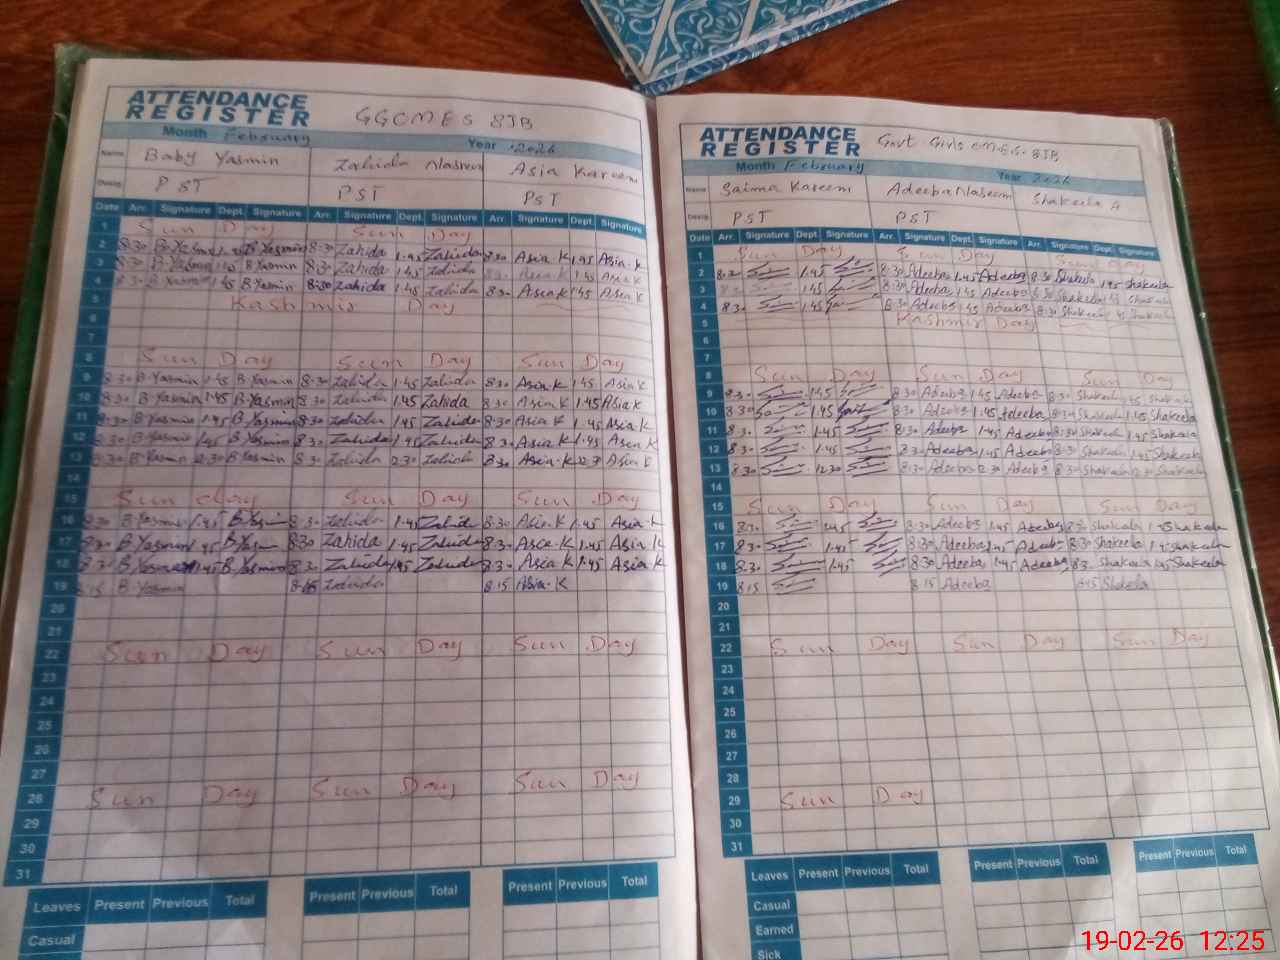 ATTENDANCE
REGISTER
GGCMES 8JB
Month February Year 2026
Name Baby Yasmin Zahida Nasreen Asia Kareem
Desig. PST PST PST
Date Arr. Signature Dept. Signature Arr. Signature Dept. Signature Arr. Signature Dept. Signature
1 Sun Day Sun Day
2 8:30 B Yasmin 1:45 B Yasmin 8:30 Zahida 1:45 Zahida 8:30 Asia K 1:45 Asia K
3 8:30 B Yasmin 1:45 B Yasmin 8:30 Zahida 1:45 Zahida 8:30 Asia K 1:45 Asia K
4 8:30 B Yasmin 1:45 B Yasmin 8:30 Zahida 1:45 Zahida 8:30 Asia K 1:45 Asia K
5 Kashmir Day
6
7
8 Sun Day Sun Day Sun Day
9 8:30 B-Yasmin 1:45 B Yasmin 8:30 Zahida 1:45 Zahida 8:30 Asia K 1:45 Asia K
10 8:30 B-Yasmin 1:45 B-Yasmin 8:30 Zahida 1:45 Zahida 8:30 Asia K 1:45 Asia K
11 8:30 B-Yasmin 1:45 B-Yasmin 8:30 Zahida 1:45 Zahida 8:30 Asia K 1:45 Asia K
12 8:30 B-Yasmin 1:45 B-Yasmin 8:30 Zahida 1:45 Zahida 8:30 Asia K 1:45 Asia K
13 8:30 B-Yasmin 12:30 B Yasmin 8:30 Zahida 12:30 Zahida 8:30 Asia-K 12:30 Asia K
14
15 Sun day Sun Day Sun Day
16 8:30 B-Yasmin 1:45 B-Yasmin 8:30 Zahida 1:45 Zahida 8:30 Asia-K 1:45 Asia-K
17 8:30 B-Yasmin 1:45 B-Yasmin 8:30 Zahida 1:45 Zahida 8:30 Asia-K 1:45 Asia K
18 8:30 B-Yasmin 1:45 B Yasmin 8:30 Zahida 1:45 Zahida 8:30 Asia K 1:45 Asia K
19 8:15 B-Yasmin 8:15 Zahida 8:15 Asia-K
20
21
22 Sun Day Sun Day Sun Day
23
24
25
26
27
28 Sun Day Sun Day Sun Day
29
30
31
Leaves Present Previous Total Present Previous Total Present Previous Total
Casual
ATTENDANCE
REGISTER
Govt Girls C.M.E.S. 8JB
Month February Year 2026
Name Saima Kaseem Adeeba Naseem Shakeela A
Desig. PST PST
Date Arr. Signature Dept. Signature Arr. Signature Dept. Signature Arr. Signature Dept. Signature
1 Sun Day Sun Day Sun day
2 1:45 8:30 Adeeba 1:45 Adeeba 8:30 Shakeela 1:45 Shakeela
3 1:45 8:30 Adeeba 1:45 Adeeba 8:30 Shakeela 1:45 Shakeela
4 8:30 1:45 8:30 Adeeba 1:45 Adeeba 8:30 Shakeela 1:45 Shakeela
5 Kashmir Day
6
7
8 Sun Day Sun Day Sun Day
9 8:30 1:45 8:30 Adeeba 1:45 Adeeba 8:30 Shakeela 1:45 Shakeela
10 8:30 1:45 8:30 Adeeba 1:45 Adeeba 8:30 Shakeela 1:45 Shakeela
11 8:30 1:45 8:30 Adeeba 1:45 Adeeba 8:30 Shakeela 1:45 Shakeela
12 8:30 1:45 8:30 Adeeba 1:45 Adeeba 8:30 Shakeela 1:45 Shakeela
13 8:30 12:30 8:30 Adeeba 12:30 Adeeba 8:30 Shakeela 12:30 Shakeela
14
15 Sun Day Sun Day Sun Day
16 8:30 1:45 8:30 Adeeba 1:45 Adeeba 8:30 Shakeela 1:45 Shakeela
17 8:30 1:45 8:30 Adeeba 1:45 Adeeba 8:30 Shakeela 1:45 Shakeela
18 8:30 1:45 8:30 Adeeba 1:45 Adeeba 8:30 Shakeela 1:45 Shakeela
19 8:15 8:15 Adeeba Shakeela
20
21
22 Sun Day Sun Day Sun Day
23
24
25
26
27
28
29 Sun Day
30
31
Leaves Present Previous Total Present Previous Total Present Previous Total
Casual
Earned
Sick
19-02-26 12:25